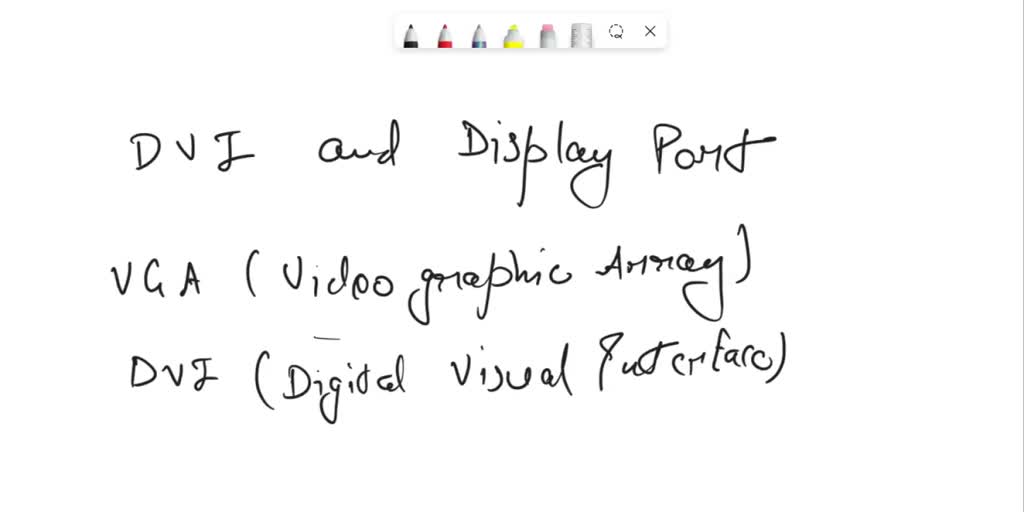 DVI and Display Port
VGA (Video graphic Array)
DVI (Digital Visual Interface)